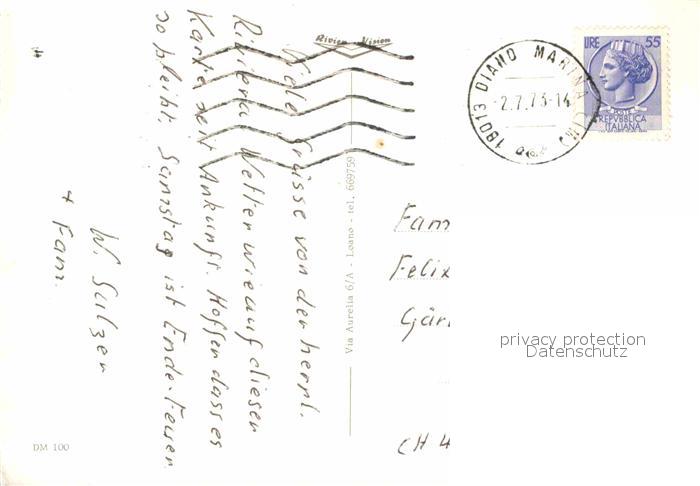 Rivier Vision
Viele Grüsse von der herrl.
Riviera. Wetter wie auf dieser
Karte seit Ankunft. Hoffen dass es
so bleibt. Samstag ist Ende-Feuer
W. Sulzer
+ Fam.
DM 100
Via Aurelia 6/A - Loano - tel. 669759
18013 DIANO MARINA (IM)
2.7.73-14
LIRE 55
POSTE
REPVBBLICA
ITALIANA
Fam
Felix
Gär
CH 4
privacy protection
Datenschutz